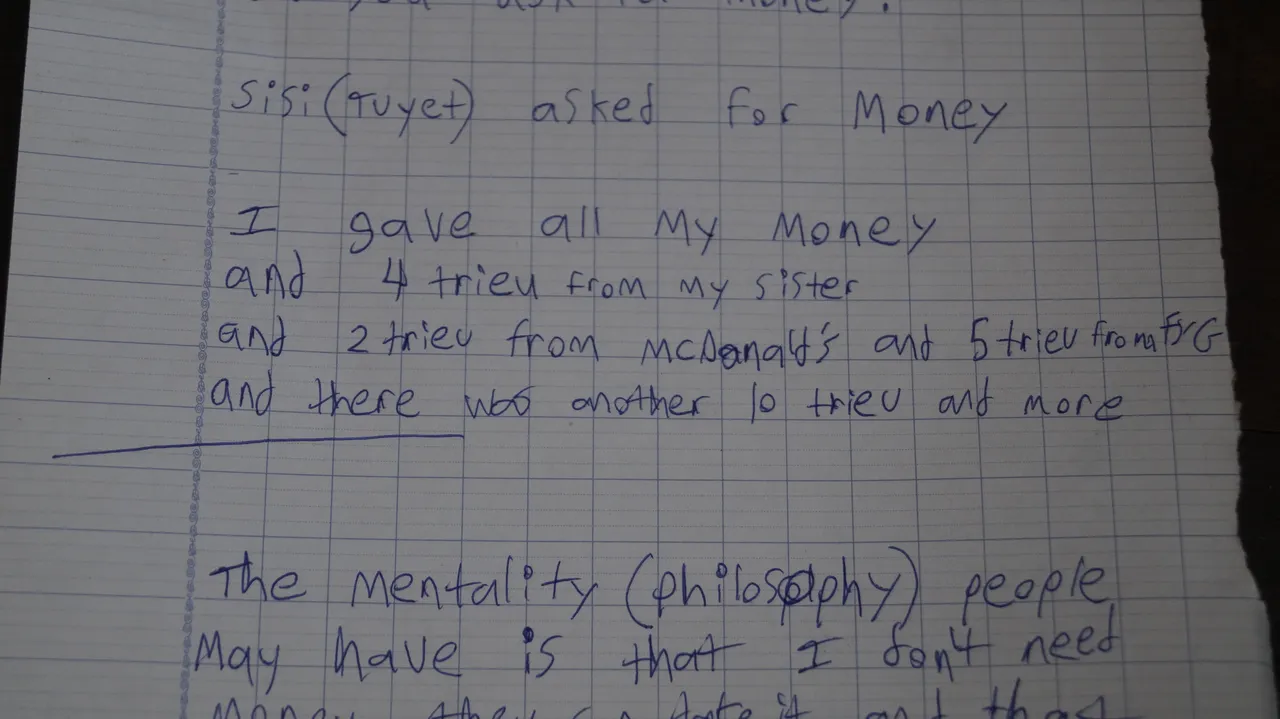 ask for money.
Sisi (Tuyet) asked for Money
I gave all My Money
and 4 trieu from my sister
and 2 trieu from McDonald's and 5 trieu from
and there was another 10 trieu and more
The Mentality (philosophy) people
May have is that I don't need
Money they